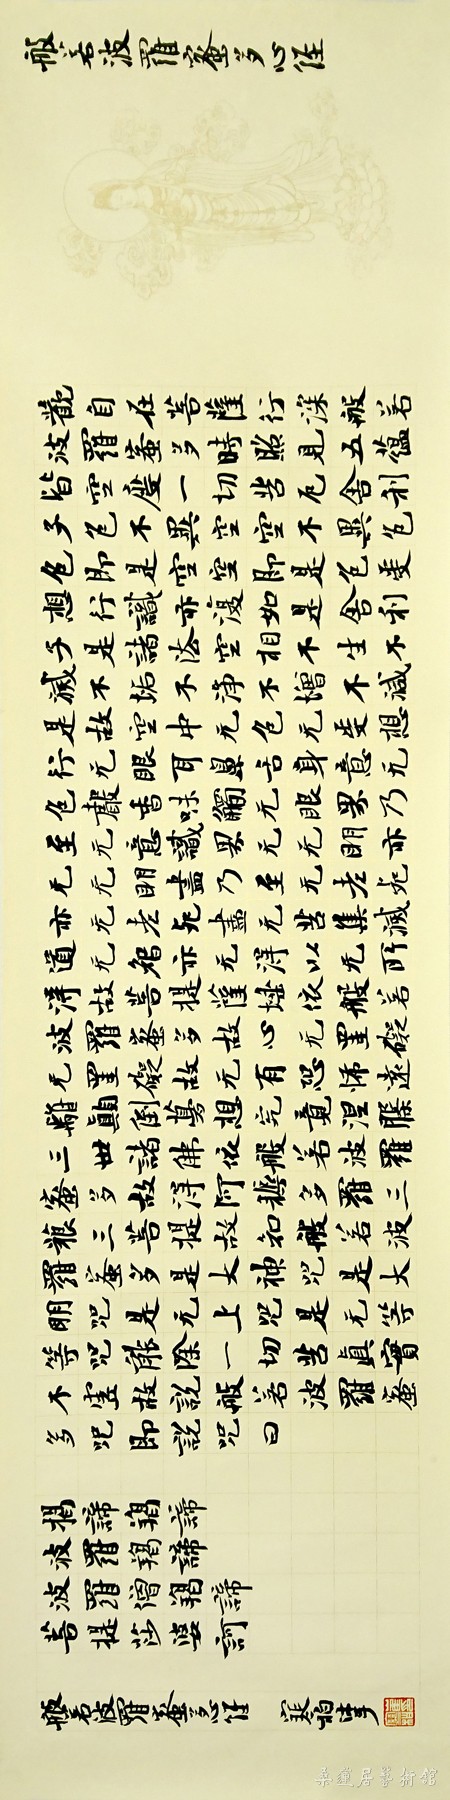 般若波羅蜜多心經
觀自在菩薩行深般若
波羅蜜多時照見五蘊
皆空度一切苦厄舍利
子色不異空空不異色
色即是空空即是色受
想行識亦復如是舍利
子是諸法空相不生不
滅不垢不淨不增不減
是故空中无色无受想
行无眼耳鼻舌身意无
色聲香味觸无眼界乃
至无意識界无无明亦
无无明盡乃至无老死
亦无老死盡无苦集滅
道无智亦无得以无所
得故菩提薩埵依般若
波羅蜜多故心无罣礙
无罣礙故无有恐怖遠
離顛倒夢想究竟涅槃
三世諸佛依般若波羅
蜜多故得阿耨多羅三
藐三菩提故知般若波
羅蜜多是大神咒是大
明咒是无上咒是无等
等咒能除一切苦真實
不虛故說般若波羅蜜
多咒即說咒曰
揭諦羯諦
波羅羯諦
波羅僧羯諦
菩提莎婆訶
般若波羅蜜多心經
桑蓮居藝術館